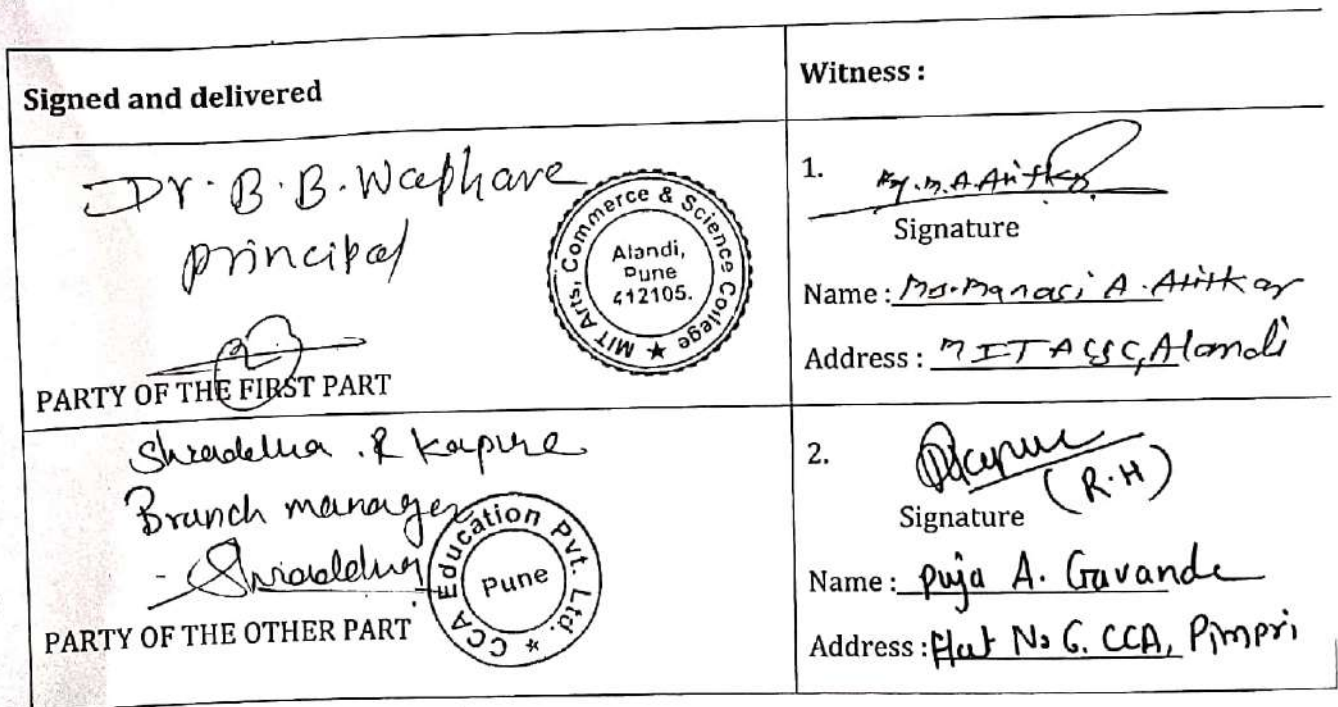 Signed and delivered
Witness :
Dr. B. B. Waphare
principal
MIT Arts, Commerce & Science College ★
Alandi,
Pune
412105.
PARTY OF THE FIRST PART
1.
Signature
Name : Ms. Manasi A. Atitkar
Address : MITACSC, Alandi
Shraddha . R Kapure
Branch manager
Shraddha
CCA Education Pvt. Ltd. *
Pune
PARTY OF THE OTHER PART
2.
(R.H)
Signature
Name : Puja A. Gavande
Address : Flat No 6. CCA, Pimpri